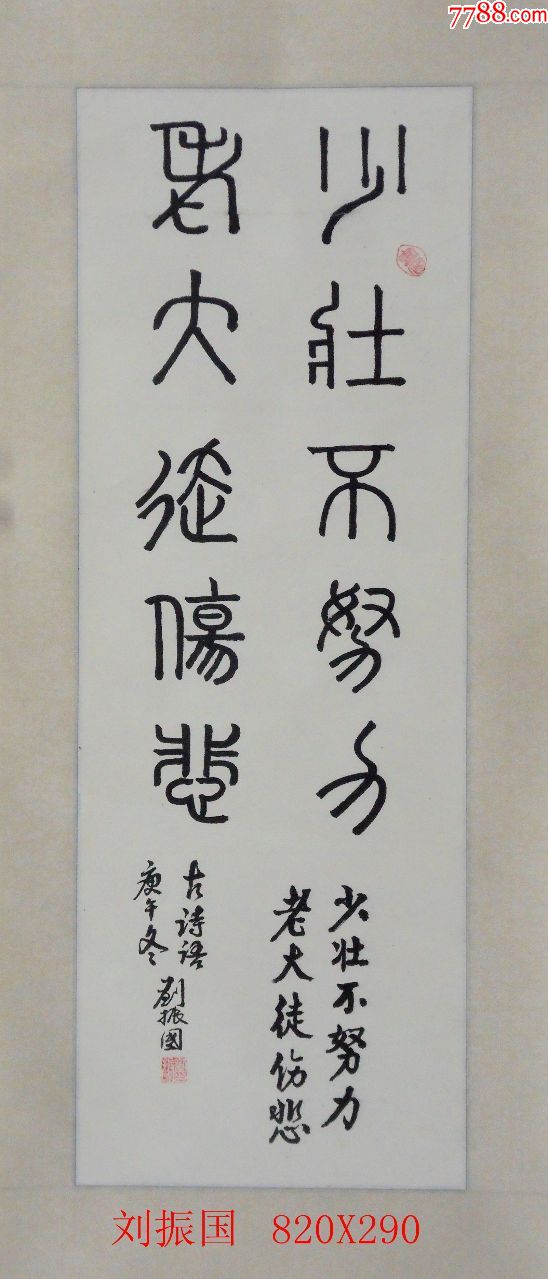 7788.com
少壯不努力
老大徒傷悲
少壮不努力
老大徒伤悲
古诗语
庚午冬
劉振國
刘振国 820X290